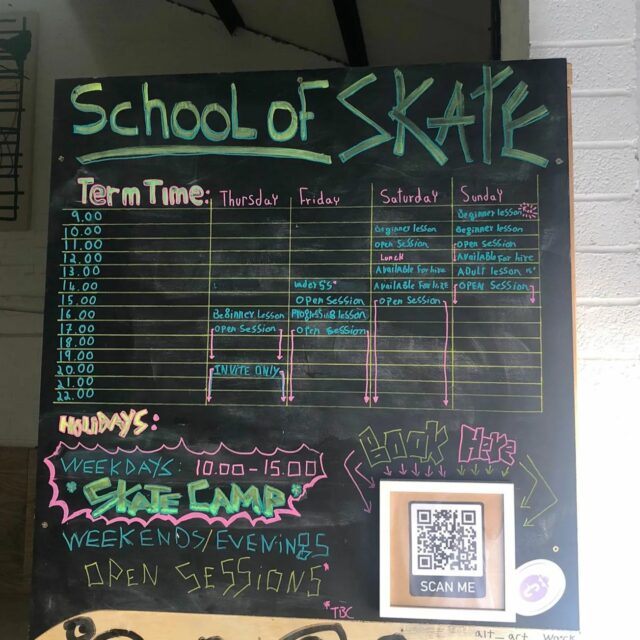 SCHOOL OF SKATE
Term Time: Thursday Friday Saturday Sunday
9.00 Beginner lesson
10.00 Beginner lesson Beginner lesson
11.00 open session open session
12.00 Lunch Available for hire
13.00 Available for hire Adult lesson
14.00 under 5s* Available for hire open session
15.00 open session open session
16.00 Beginner lesson Progression lesson
17.00 open session open session
18.00
19.00
20.00 INVITE ONLY
21.00
22.00
HOLIDAYS:
WEEKDAYS: 10.00-15.00
* SKATE CAMP *
WEEKENDS/EVENINGS
OPEN SESSIONS*
*TBC
BOOK Here
SCAN ME